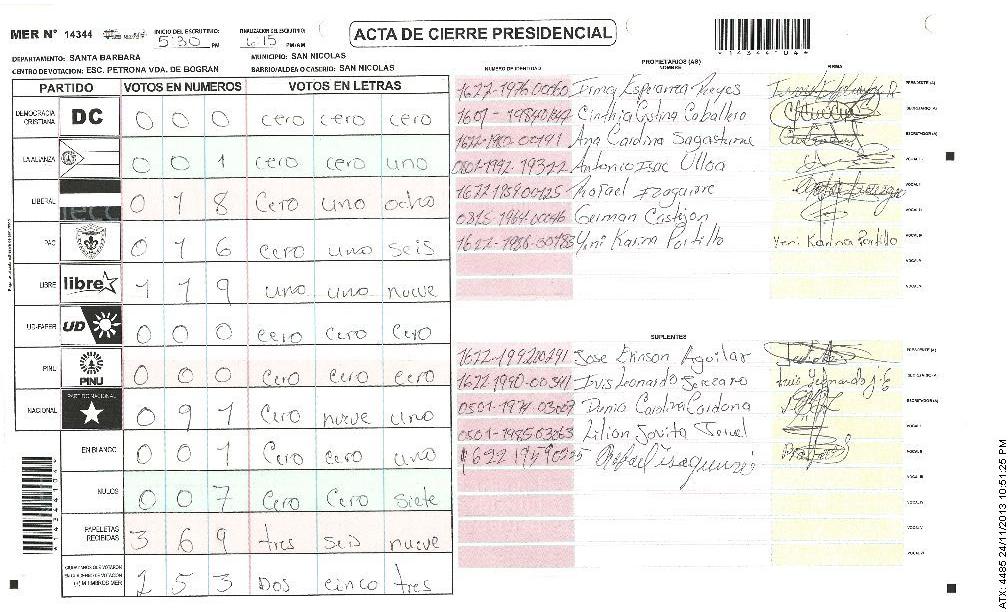 MER N° 14344 INICIO DEL ESCRUTINIO: 5:30 PM FINALIZACION DEL ESCRUTINIO: 6:15 PM/AM
ACTA DE CIERRE PRESIDENCIAL
DEPARTAMENTO: SANTA BARBARA MUNICIPIO: SAN NICOLAS
CENTRO DE VOTACION: ESC. PETRONA VDA. DE BOGRAN BARRIO/ALDEA O CASERIO: SAN NICOLAS
PARTIDO VOTOS EN NUMEROS VOTOS EN LETRAS
DEMOCRACIA CRISTIANA DC 0 0 0 cero cero cero
LA ALIANZA 0 0 1 cero cero uno
LIBERAL 0 1 8 Cero uno ocho
PAC 0 1 6 Cero uno seis
LIBRE libre 1 1 9 uno uno nueve
UD-FAPER UD 0 0 0 cero Cero Cero
PINU PINU 0 0 0 cero cero cero
NACIONAL PARTIDO NACIONAL 0 9 1 Cero nueve uno
EN BLANCO 0 0 1 Cero cero uno
NULOS 0 0 7 Cero Cero siete
PAPELETAS RECIBIDAS 3 6 9 tres seis nueve
2 5 3 Dos cinco tres
NUMERO DE IDENTIDAD PROPIETARIOS (AS) NOMBRE FIRMA
Irma Esperanza Reyes PRESIDENTE (A)
Cinthia Cristina Caballero SECRETARIO (A)
Ana Carolina ESCRUTADOR (A)
0801-1992-19322 Antonio Isac Ulloa VOCAL I
Rafael VOCAL II
0815-1964-00046 German Castejon VOCAL III
Yeni Karina Portillo Yeni Karina Portillo VOCAL IV
SUPLENTES
Jose Erinson Aguilar PRESIDENTE (A)
1622-1990-00341 Iris Leonardo SECRETARIO (A)
0501-1974-03007 Dunia Carolina Cardona ESCRUTADOR (A)
0501-1985-03063 Lilian Jovita VOCAL I
Rafael
ATX: 4485 24/11/2013 10:51:25 PM